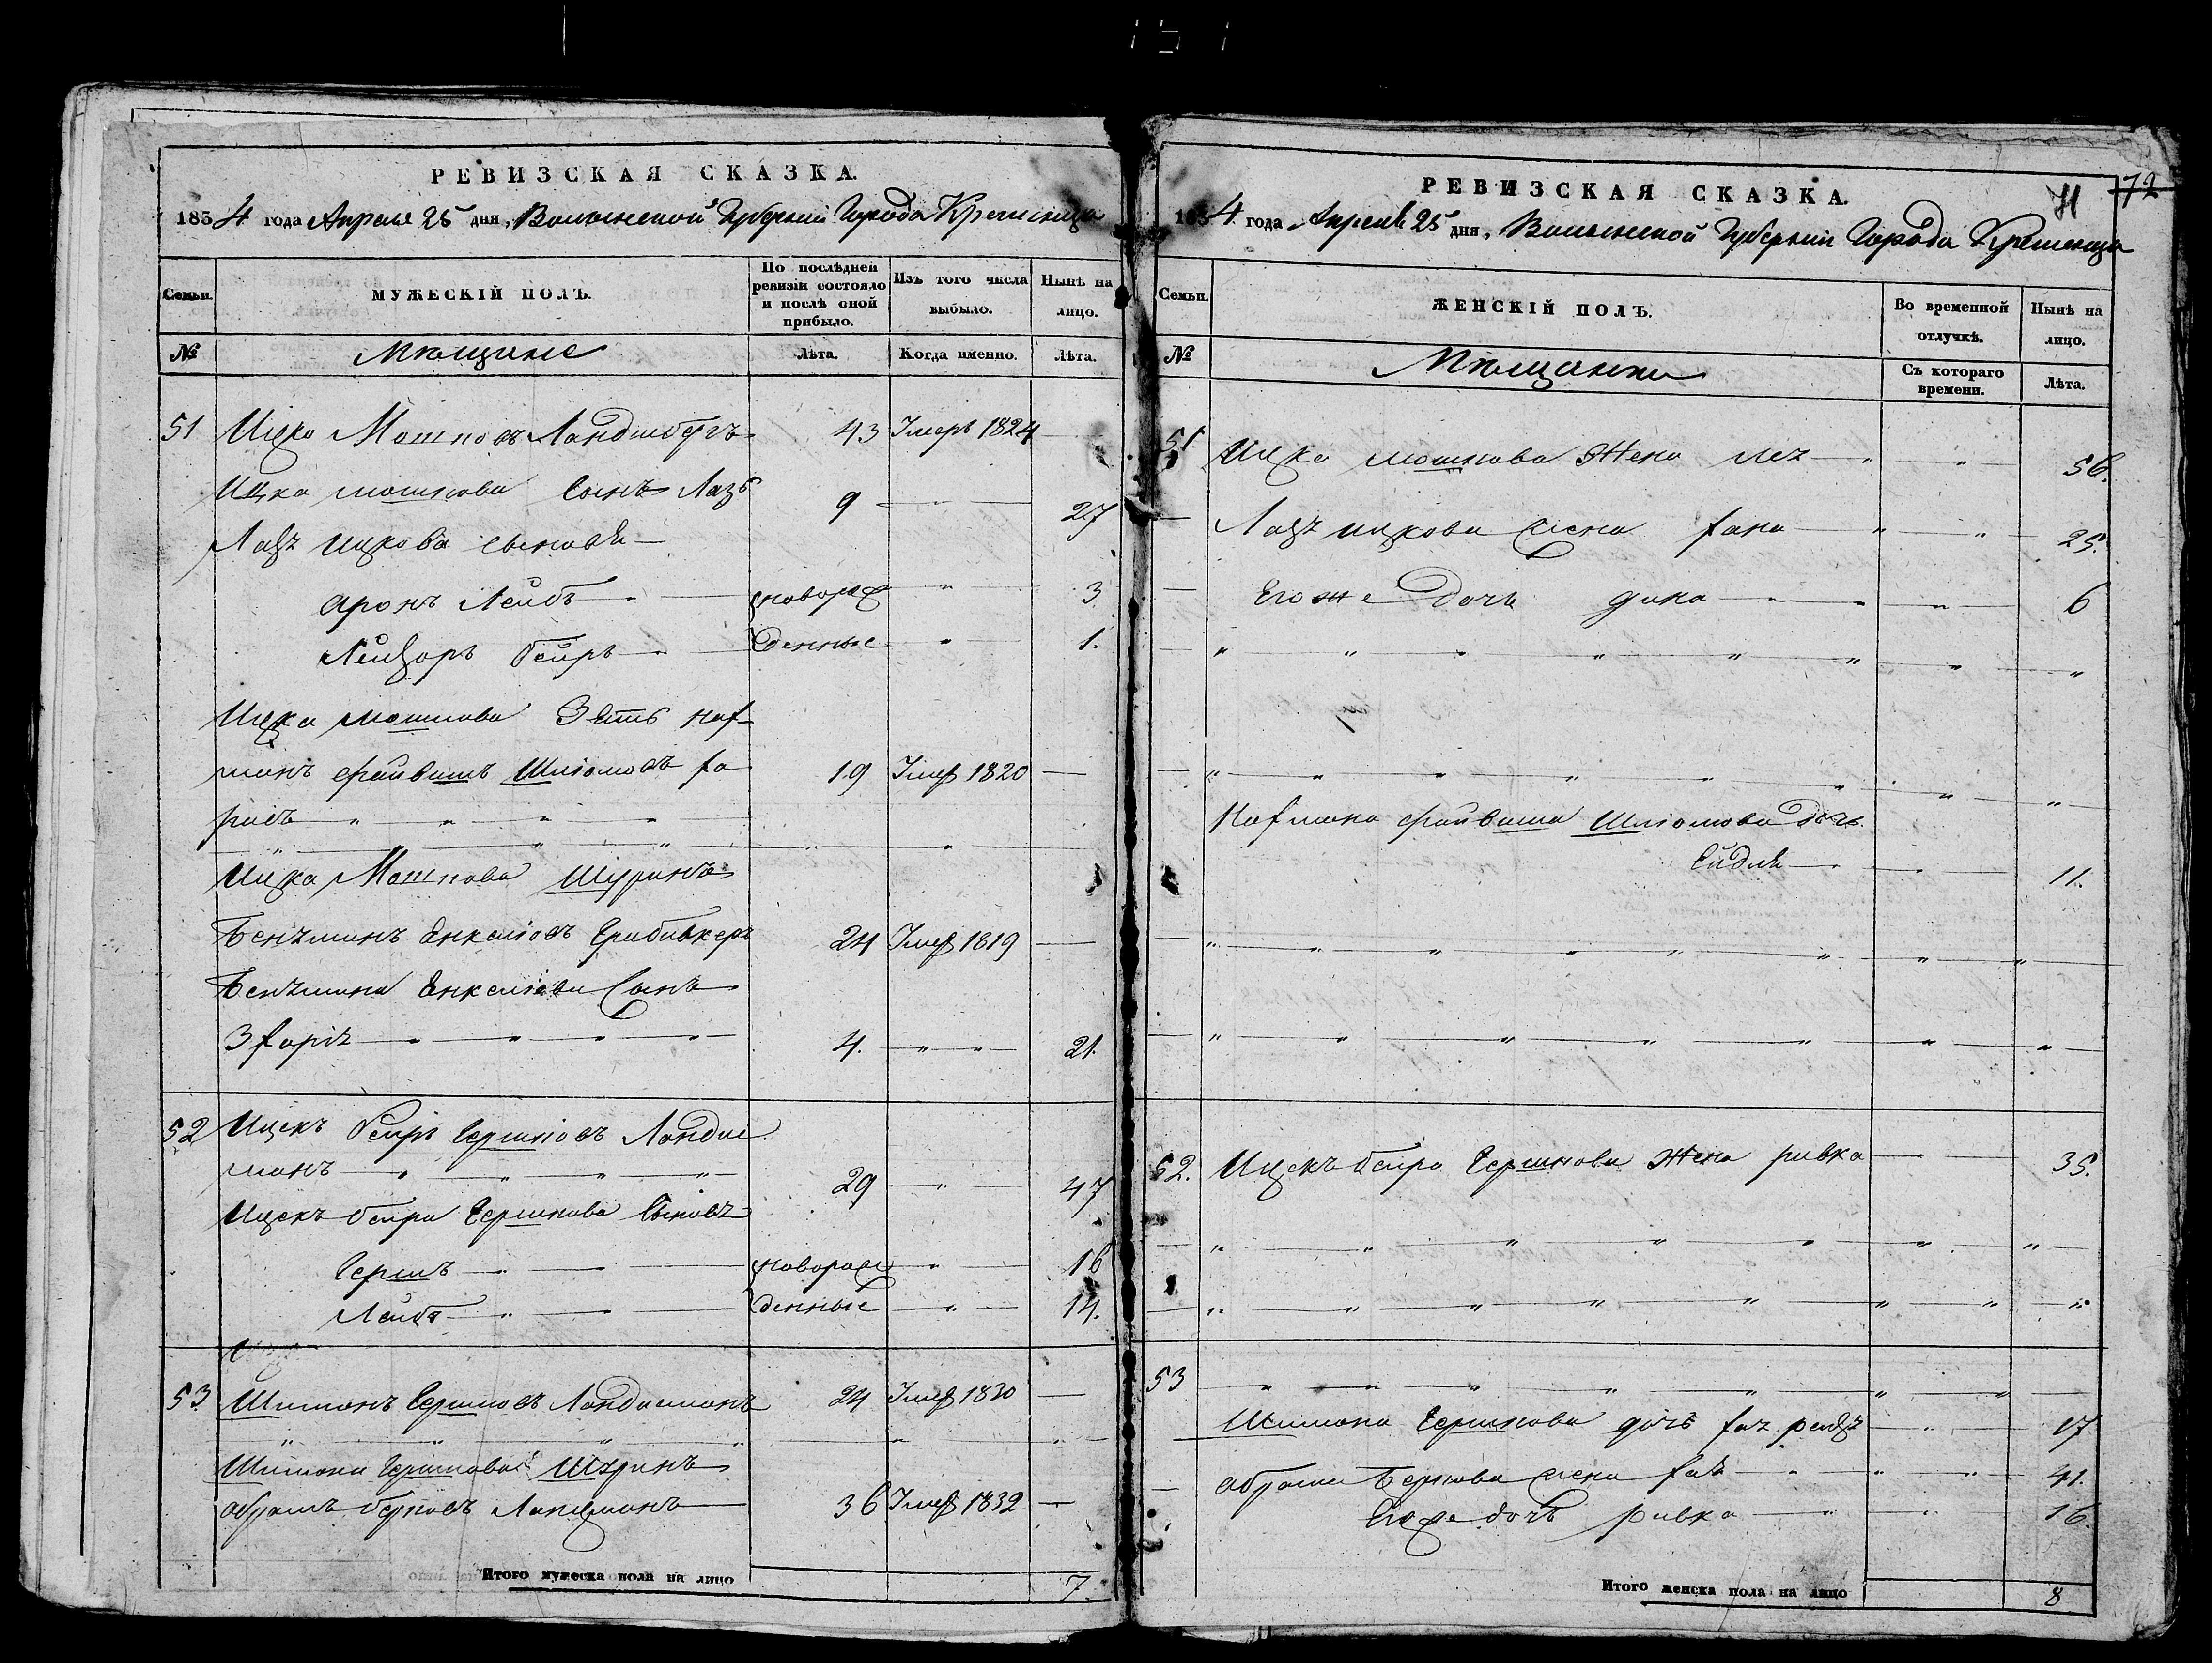 РЕВИЗСКАЯ СКАЗКА.
1834 года Апреля 25 дня, Волынской Губернии Города Кременца
Семьи.
МУЖЕСКІЙ ПОЛЪ.
По послѣдней ревизіи состояло и послѣ оной прибыло.
Изъ того числа выбыло.
Нынѣ на лицо.
№
Мѣщане
Лѣта.
Когда именно.
Лѣта.
51 Ицко Мошковъ Ландшбергъ 43 Умеръ 1824 —
Ицка мошкова Сынъ Лазъ 9 — " — 27
Лазъ ицкова сыновья —
аронъ Лейбъ новорож " 3
Лейзоръ беиръ денные " 1.
Ицка мошкова Зять
файвишъ Шліомовъ 19 Умер 1820 —
Ицка Мошкова Шуринъ
Бенъминъ Енкеліовъ 24 Умер 1819 —
Бенъмина Енкеліова Сынъ
4. — " — " — 21.
52 Ицекъ беиръ Гершковъ Ландис
манъ 29 — " — 47
Ицекъ беира Гершкова Сыновъ
Гершъ новорож " 16
Лейбъ денные " 14.
53 Шимонъ Гершковъ Ландисманъ 24 Умер 1830 —
Шимона Гершкова Шуринъ
абрамъ берковъ 36 Умер 1832 —
Итого мужеска пола на лицо 7.
71 72
РЕВИЗСКАЯ СКАЗКА.
1834 года Апреля 25 дня, Волынской Губернии Города Кременца
Семьи.
ЖЕНСКІЙ ПОЛЪ.
Во временной отлучкѣ.
Нынѣ на лицо.
№
Мѣщанки
Съ котораго времени.
Лѣта.
51 Ицка мошкова Жена 56.
Лазъ ицкова жена 25.
Его же дочь дина 6
файвиша Шліомова дочь
Ейдля 11.
52. Ицекъ беира Гершкова Жена ривка 35.
53
Шимона Гершкова дочь 17
абрама Беркова жена 41.
Его же дочь ривка 16.
Итого женска пола на лицо 8